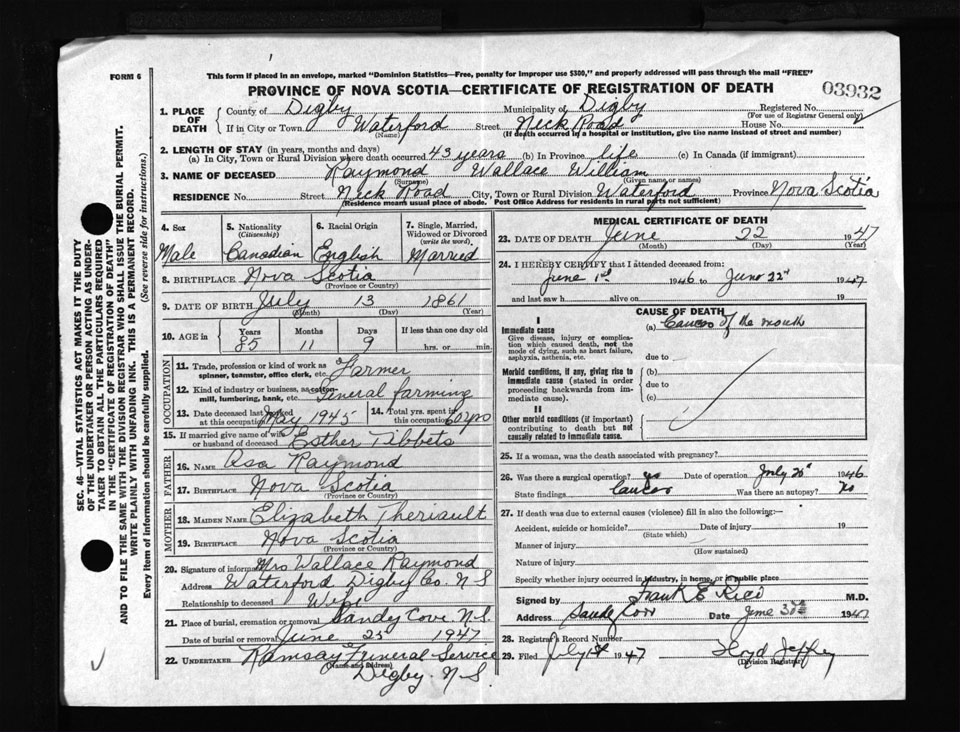 FORM 6
This form if placed in an envelope, marked "Dominion Statistics—Free, penalty for improper use $300," and properly addressed will pass through the mail "FREE"
PROVINCE OF NOVA SCOTIA—CERTIFICATE OF REGISTRATION OF DEATH
03932
1. PLACE OF DEATH
County of Digby Municipality of Digby Registered No.
(For use of Registrar General only)
If in City or Town Waterford Street Neck Road House No.
(Name) (If death occurred in a hospital or institution, give the name instead of street and number)
2. LENGTH OF STAY (in years, months and days)
(a) In City, Town or Rural Division where death occurred 43 years (b) In Province life (c) In Canada (if immigrant)
3. NAME OF DECEASED Raymond Wallace William
(Surname) (Given name or names)
RESIDENCE No. Street Neck Road City, Town or Rural Division Waterford Province Nova Scotia
(Residence means usual place of abode. Post Office Address for residents in rural parts not sufficient)
4. Sex 5. Nationality (Citizenship) 6. Racial Origin 7. Single, Married, Widowed or Divorced (write the word)
Male Canadian English Married
8. BIRTHPLACE Nova Scotia
(Province or Country)
9. DATE OF BIRTH July 13 1861
(Month) (Day) (Year)
10. AGE in Years Months Days If less than one day old
85 11 9 hrs. or min.
OCCUPATION
11. Trade, profession or kind of work as spinner, teamster, office clerk, etc. Farmer
12. Kind of industry or business, as cotton-mill, lumbering, bank, etc. General farming
13. Date deceased last worked at this occupation May 1945 14. Total yrs. spent in this occupation yrs
15. If married give name of wife or husband of deceased Esther Tibbets
FATHER
16. NAME Asa Raymond
17. BIRTHPLACE Nova Scotia
(Province or Country)
MOTHER
18. MAIDEN NAME Elizabeth Theriault
19. BIRTHPLACE Nova Scotia
(Province or Country)
20. Signature of informant Mrs Wallace Raymond
Address Waterford Digby Co. N S
Relationship to deceased Wife
21. Place of burial, cremation or removal Sandy Cove N.S.
Date of burial or removal June 25 1947
22. UNDERTAKER Ramsay Funeral Service
(Name and Address)
Digby. N S.
MEDICAL CERTIFICATE OF DEATH
23. DATE OF DEATH June 22 1947
(Month) (Day) (Year)
24. I HEREBY CERTIFY that I attended deceased from:
June 1st 1946 to June 22nd 1947
and last saw h alive on 19
CAUSE OF DEATH
I
Immediate cause (a) Cancer of the mouth
Give disease, injury or complication which caused death, not the mode of dying, such as heart failure, asphyxia, asthenia, etc.
due to
Morbid conditions, if any, giving rise to immediate cause (stated in order proceeding backwards from immediate cause).
(b)
due to
(c)
II
Other morbid conditions (if important) contributing to death but not causally related to immediate cause.
25. If a woman, was the death associated with pregnancy?
26. Was there a surgical operation? yes Date of operation 1946
State findings Cancer Was there an autopsy? No
27. If death was due to external causes (violence) fill in also the following:—
Accident, suicide or homicide? Date of injury 19
(State which)
Manner of injury
(How sustained)
Nature of injury
Specify whether injury occurred in industry, in home, or in public place
Signed by Frank E Rice M.D.
Address Sandy Cove Date June 30th 1947
28. Registrar's Record Number
29. Filed July 1st 1947 Lloyd
(Division Registrar)
SEC. 46—VITAL STATISTICS ACT MAKES IT THE DUTY
OF THE UNDERTAKER OR PERSON ACTING AS UNDER-
TAKER TO OBTAIN ALL THE PARTICULARS REQUIRED
IN THE "CERTIFICATE OF REGISTRATION OF DEATH"
AND TO FILE THE SAME WITH THE DIVISION REGISTRAR WHO SHALL ISSUE THE BURIAL PERMIT.
WRITE PLAINLY WITH UNFADING INK. THIS IS A PERMANENT RECORD.
Every item of information should be carefully supplied. (See reverse side for instructions.)